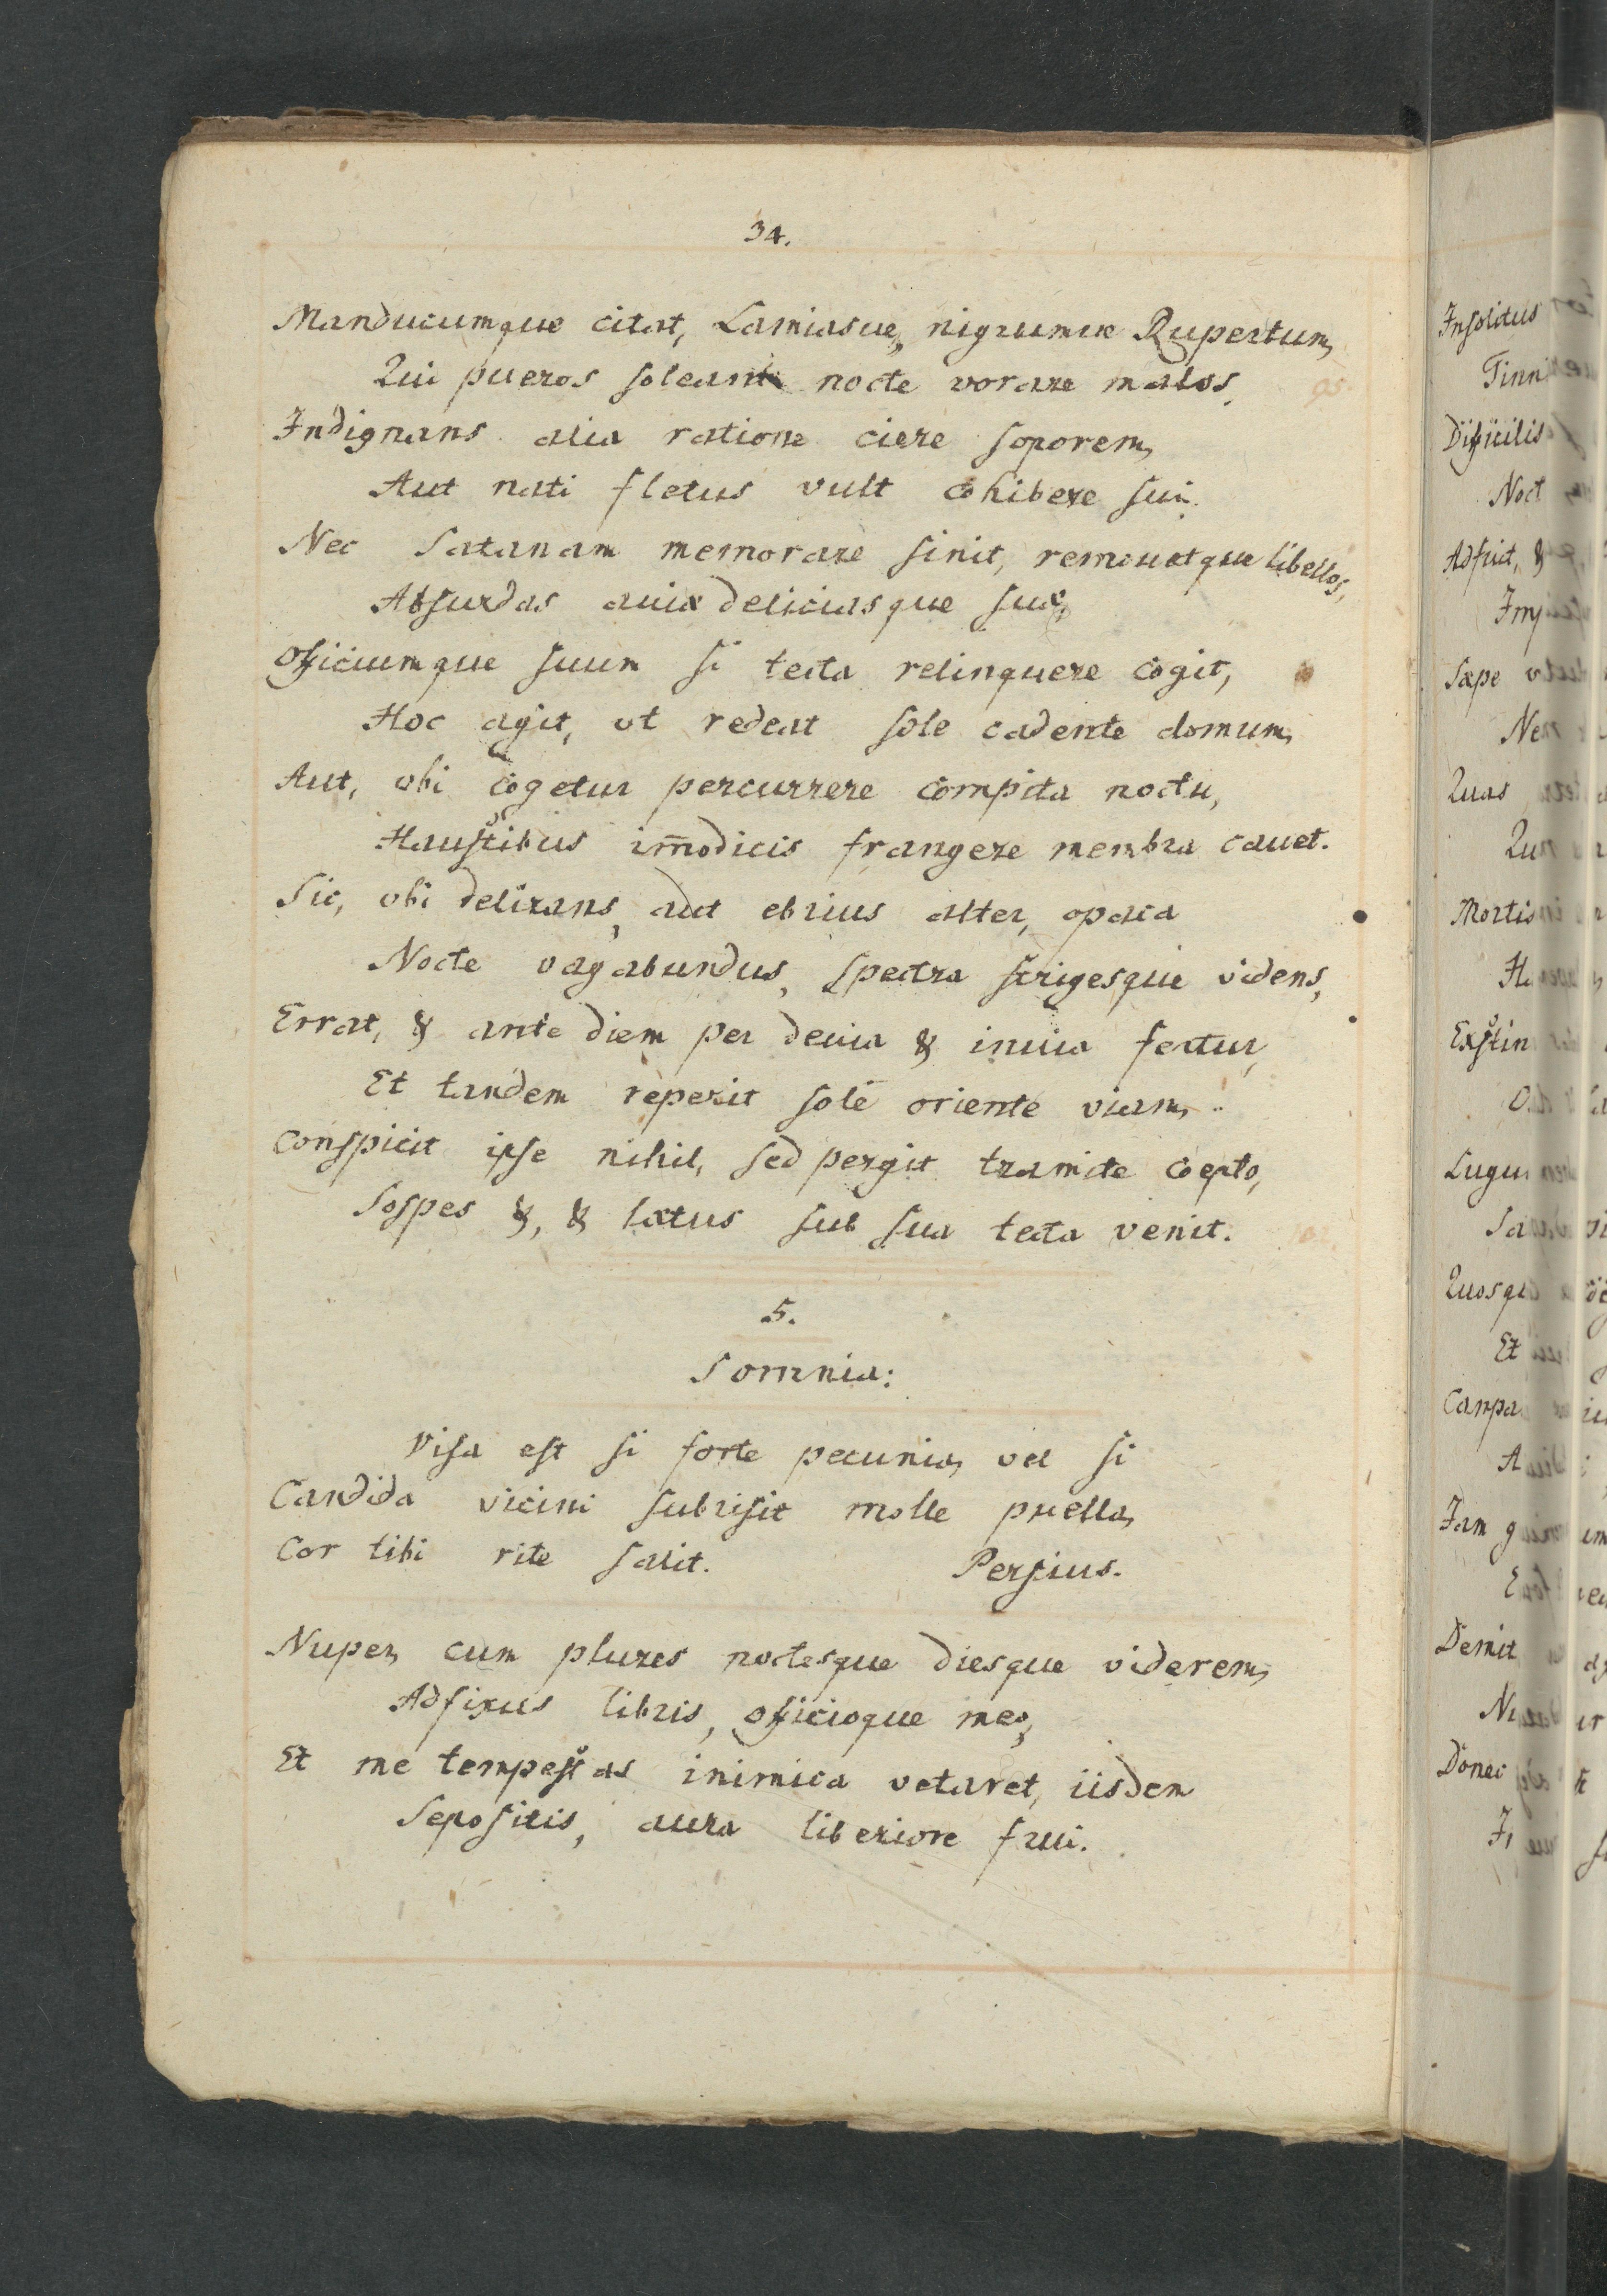 34.
Manducumque citat, Lamiasue, nigrumue Rupertum,
Qui pueros soleant nocte vorare malos.
Indignans alia ratione ciere soporem,
Aut nati fletus vult cohibere sui.
Nec Satanam memorare sinit, remouetque libellos,
Absurdas auiæ deliciasque suæ,
Officiumque suum si tecta relinquere cogit,
Hoc agit, vt redeat sole cadente domum,
Aut, vbi cogetur percurrere compita noctu,
Haustibus im̄odicis frangere membra cauet.
Sic, vbi delirans, aut ebrius alter, opaca
Nocte vagabundus, spectra strigesque videns,
Errat, & ante diem per deuia & inuia fertur,
Et tandem reperit sole oriente viam,
Conspicit ipse nihil, sed pergit tramite coepto,
Sospes &, & lætus sub sua tecta venit.
5.
Somnia:
Visa est si forte pecunia, vel si
Candida vicini subrisit molle puella,
Cor tibi rite salit. Persius.
Nuper, cum plures noctesque diesque viderem,
Adfixus libris, officioque meo,
Et me tempestas inimica vetaret, iisdem
Sepositis, aura liberiore frui.
Insolitus
Tinn
Difficilis
Noct
Adfuit, &
Imp
Sæpe
Ne
Quas
Qu
Mortis
H
Exstin
O
Lugu
Sa
Quosqu
Et
Campa
A
Jam g
E
Demit
N
Donec